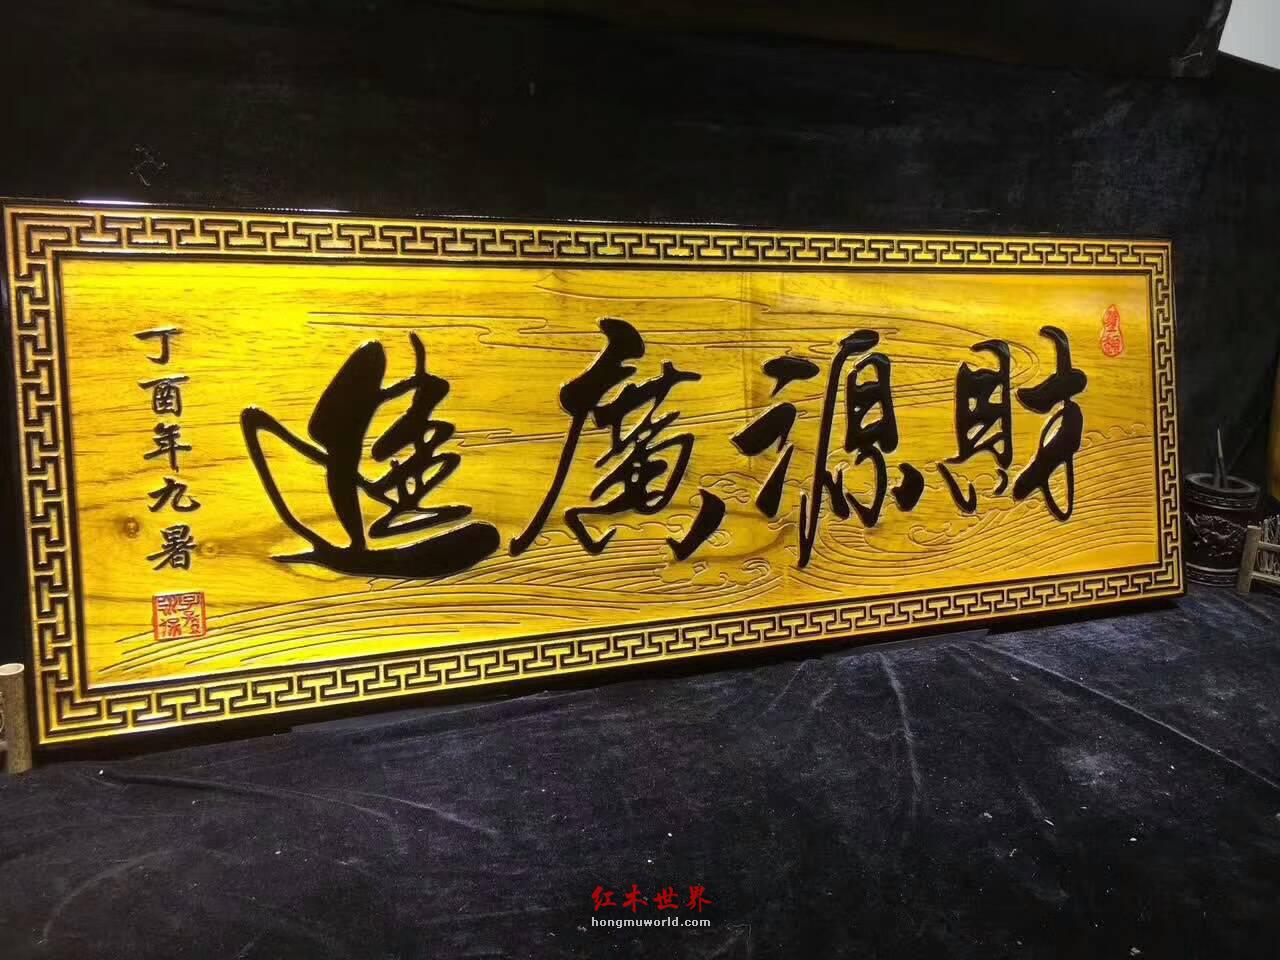 財源廣進
丁酉年九暑
红木世界
hongmuworld.com